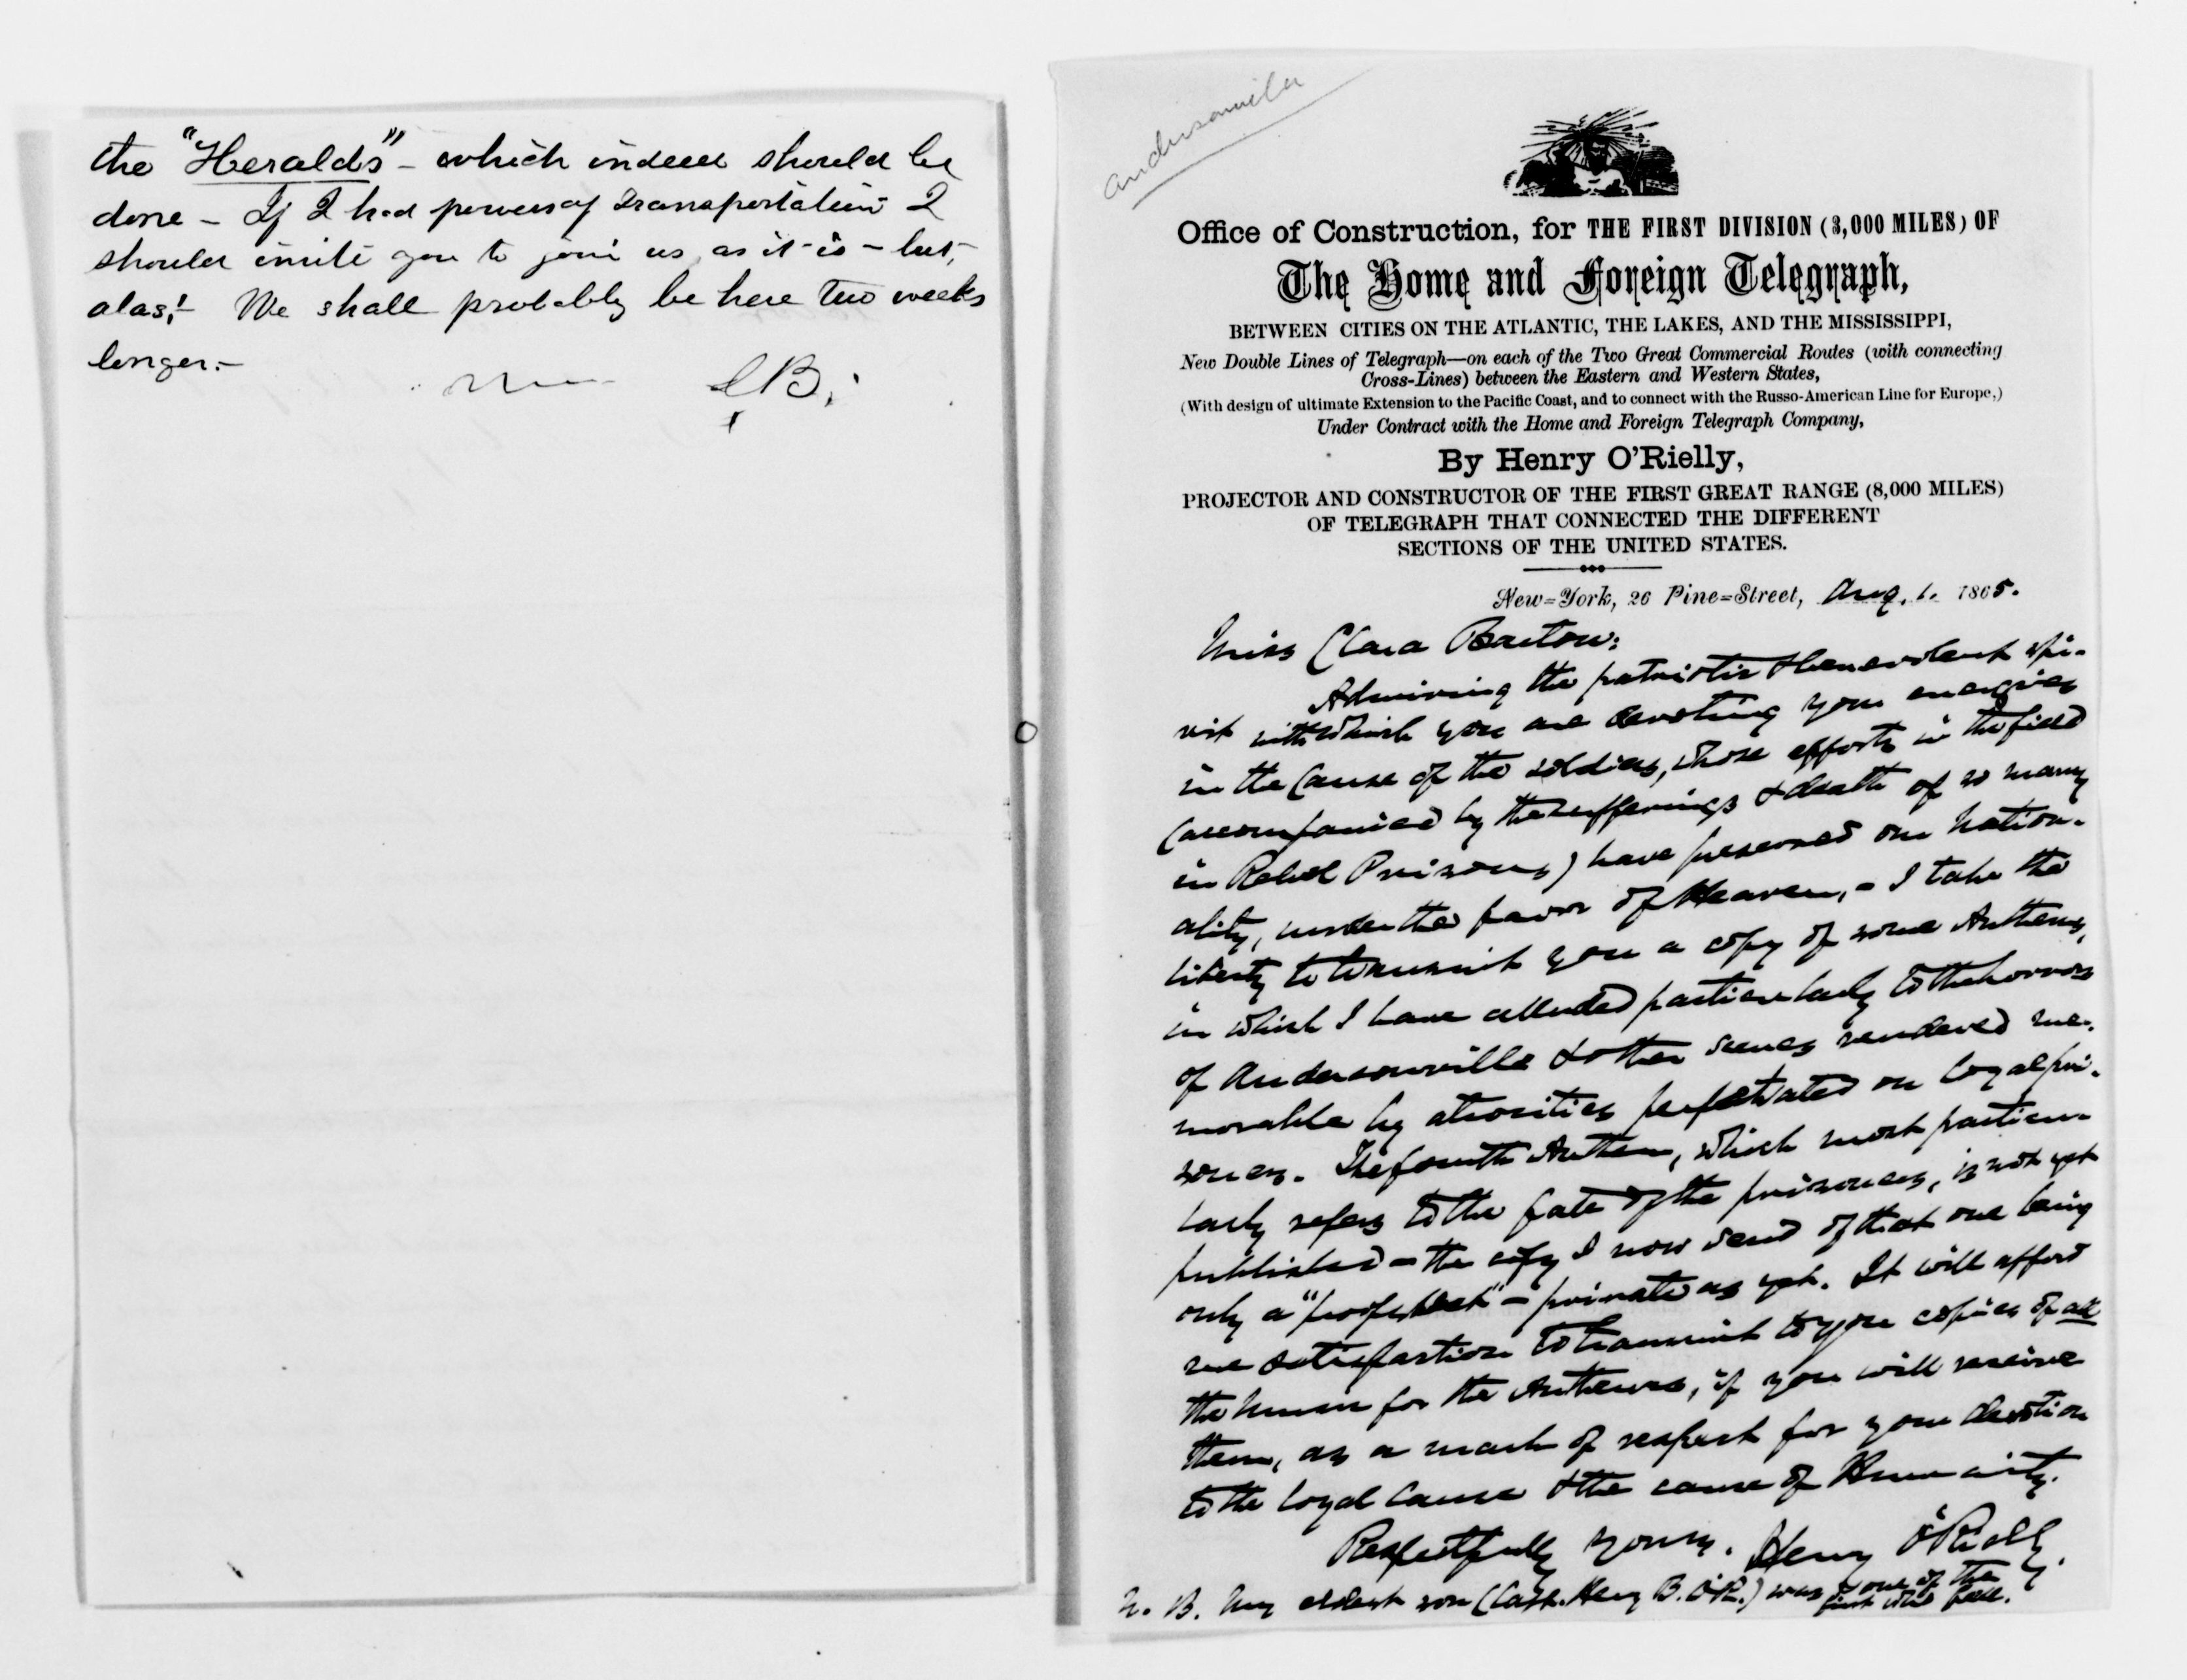 the "Herald's" – which indeed should be
done – If I had powers of Transportation I
should invite you to join us, as it is – but,
alas! – We shall probably be here two weeks
longer. –
CB.
Andersonville
Office of Construction, for THE FIRST DIVISION (3,000 MILES) OF
The Home and Foreign Telegraph,
BETWEEN CITIES ON THE ATLANTIC, THE LAKES, AND THE MISSISSIPPI,
New Double Lines of Telegraph—on each of the Two Great Commercial Routes (with connecting
Cross-Lines) between the Eastern and Western States,
(With design of ultimate Extension to the Pacific Coast, and to connect with the Russo-American Line for Europe,)
Under Contract with the Home and Foreign Telegraph Company,
By Henry O'Rielly,
PROJECTOR AND CONSTRUCTOR OF THE FIRST GREAT RANGE (8,000 MILES)
OF TELEGRAPH THAT CONNECTED THE DIFFERENT
SECTIONS OF THE UNITED STATES.
New=York, 26 Pine=Street, Aug. 1. 1865.
Miss Clara Barton:
Admiring the patriotic & benevolent spi-
rit with which you are devoting your energies
in the cause of the soldiers, whose efforts in the field
(accompanied by the sufferings & death of so many
in Rebel Prisons) have preserved our Nation-
ality, under the favor of Heaven, – I take the
liberty to transmit you a copy of some Anthems,
in which I have alluded particularly to the horrors
of Andersonville & other scenes rendered me-
morable by atrocities perpetrated on loyal pri-
soners. The fourth Anthem, which most particu-
larly refers to the fate of the prisoners, is not yet
published – the copy I now send of that one being
only a "proof sheet" – private as yet. It will afford
me satisfaction to transmit to you copies of all
the music for the Anthems, if you will receive
them, as a mark of respect for your devotion
to the loyal cause & the cause of Humanity.
Respectfully yours, Henry O'Rielly.
N. B. My eldest son (Capt. Henry B. O'R.) was one of the
first who fell.